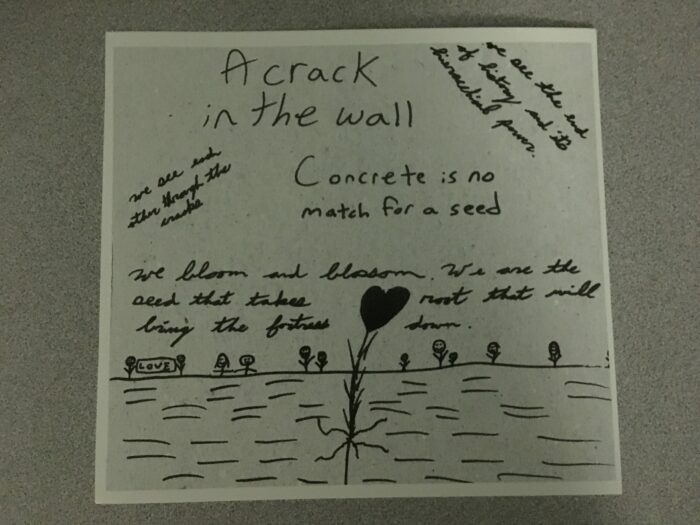 A crack
in the wall
we see the end
of history and its
hierarchical power.
we see each
other through the
cracks
Concrete is no
match for a seed
We bloom and blossom. We are the
seed that takes root that will
bring the fortress down.
LOVE